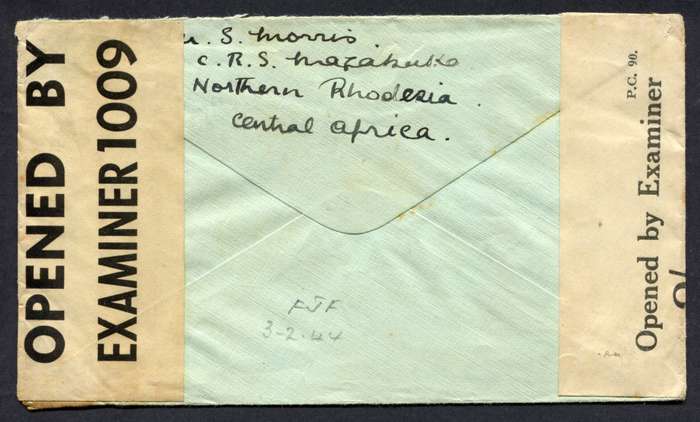 OPENED BY
EXAMINER 1009
S. Morris.
C.R.S. Mazabuka
Northern Rhodesia.
Central Africa.
FJF
3-2.44
P.C. 90.
Opened by Examiner